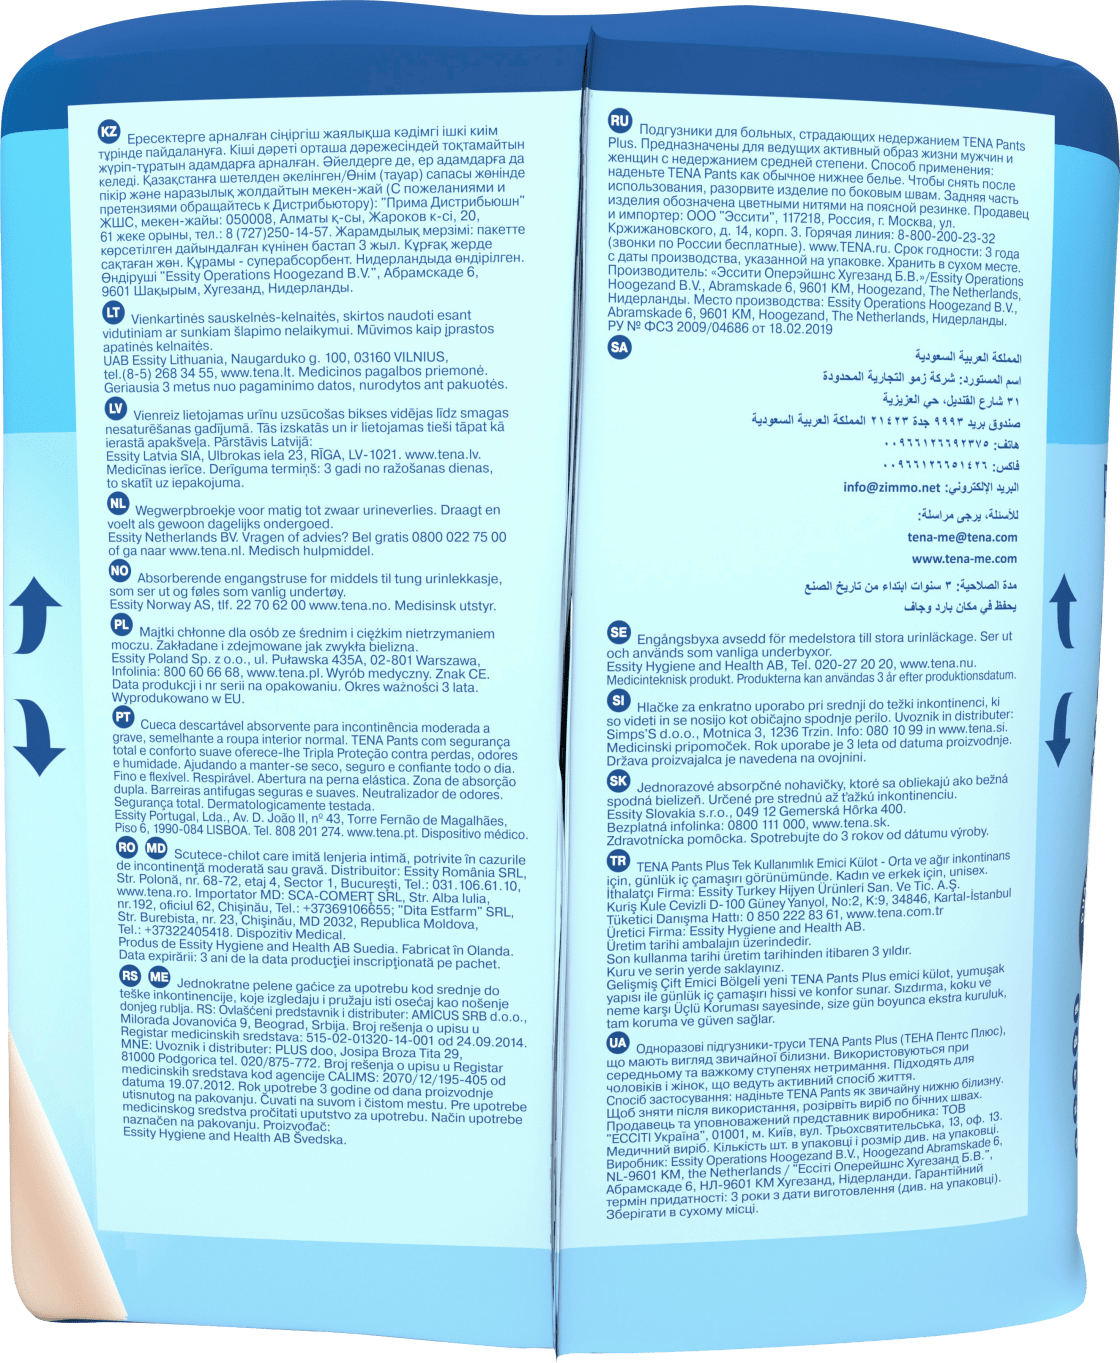 KZ Ересектерге арналған сіңіргіш жаялықша кәдімгі ішкі киім
түрінде пайдалануға. Кіші дәреті орташа дәрежесіндей тоқтамайтын
жүріп-тұратын адамдарға арналған. Әйелдерге де, ер адамдарға да
келеді. Қазақстанға шетелден әкелінген/Өнім (тауар) сапасы жөнінде
пікір және наразылық жолдайтын мекен-жай (С пожеланиями и
претензиями обращайтесь к Дистрибьютору): "Прима Дистрибьюшн"
ЖШС, мекен-жайы: 050008, Алматы қ-сы, Жароков к-сі, 20,
61 жеке орыны, тел.: 8 (727)250-14-57. Жарамдылық мерзімі: пакетте
көрсетілген дайындалған күнінен бастап 3 жыл. Құрғақ жерде
сақтаған жөн. Құрамы - суперабсорбент. Нидерландыда өндірілген.
Өндіруші "Essity Operations Hoogezand B.V.", Абрамскаде 6,
9601 Шақырым, Хугезанд, Нидерланды.
LT Vienkartinės sauskelnės-kelnaitės, skirtos naudoti esant
vidutiniam ar sunkiam šlapimo nelaikymui. Mūvimos kaip įprastos
apatinės kelnaitės.
UAB Essity Lithuania, Naugarduko g. 100, 03160 VILNIUS,
tel.(8-5) 268 34 55, www.tena.lt. Medicinos pagalbos priemonė.
Geriausia 3 metus nuo pagaminimo datos, nurodytos ant pakuotės.
LV Vienreiz lietojamas urīnu uzsūcošas bikses vidējas līdz smagas
nesaturēšanas gadījumā. Tās izskatās un ir lietojamas tieši tāpat kā
ierastā apakšveļa. Pārstāvis Latvijā:
Essity Latvia SIA, Ulbrokas iela 23, RĪGA, LV-1021. www.tena.lv.
Medicīnas ierīce. Derīguma termiņš: 3 gadi no ražošanas dienas,
to skatīt uz iepakojuma.
NL Wegwerpbroekje voor matig tot zwaar urineverlies. Draagt en
voelt als gewoon dagelijks ondergoed.
Essity Netherlands BV. Vragen of advies? Bel gratis 0800 022 75 00
of ga naar www.tena.nl. Medisch hulpmiddel.
NO Absorberende engangstruse for middels til tung urinlekkasje,
som ser ut og føles som vanlig undertøy.
Essity Norway AS, tlf. 22 70 62 00 www.tena.no. Medisinsk utstyr.
PL Majtki chłonne dla osób ze średnim i ciężkim nietrzymaniem
moczu. Zakładane i zdejmowane jak zwykła bielizna.
Essity Poland Sp. z o.o., ul. Puławska 435A, 02-801 Warszawa,
Infolinia: 800 60 66 68, www.tena.pl. Wyrób medyczny. Znak CE.
Data produkcji i nr serii na opakowaniu. Okres ważności 3 lata.
Wyprodukowano w EU.
PT Cueca descartável absorvente para incontinência moderada a
grave, semelhante a roupa interior normal. TENA Pants com segurança
total e conforto suave oferece-lhe Tripla Proteção contra perdas, odores
e humidade. Ajudando a manter-se seco, seguro e confiante todo o dia.
Fino e flexível. Respirável. Abertura na perna elástica. Zona de absorção
dupla. Barreiras antifugas seguras e suaves. Neutralizador de odores.
Segurança total. Dermatologicamente testada.
Essity Portugal, Lda., Av. D. João II, nº 43, Torre Fernão de Magalhães,
Piso 6, 1990-084 LISBOA. Tel. 808 201 274. www.tena.pt. Dispositivo médico.
RO MD Scutece-chilot care imită lenjeria intimă, potrivite în cazurile
de incontinenţă moderată sau gravă. Distribuitor: Essity România SRL,
Str. Polonă, nr. 68-72, etaj 4, Sector 1, Bucureşti, Tel.: 031.106.61.10,
www.tena.ro. Importator MD: SCA-COMERŢ SRL, Str. Alba Iulia,
nr.192, oficiul 62, Chişinău, Tel.: +37369106655; "Dita Estfarm" SRL,
Str. Burebista, nr. 23, Chişinău, MD 2032, Republica Moldova,
Tel.: +37322405418. Dispozitiv Medical.
Produs de Essity Hygiene and Health AB Suedia. Fabricat în Olanda.
Data expirării: 3 ani de la data producţiei inscripţionată pe pachet.
RS ME Jednokratne pelene gaćice za upotrebu kod srednje do
teške inkontinencije, koje izgledaju i pružaju isti osećaj kao nošenje
donjeg rublja. RS: Ovlašćeni predstavnik i distributer: AMICUS SRB d.o.o.,
Milorada Jovanovića 9, Beograd, Srbija. Broj rešenja o upisu u
Registar medicinskih sredstava: 515-02-01320-14-001 od 24.09.2014.
MNE: Uvoznik i distributer: PLUS doo, Josipa Broza Tita 29,
81000 Podgorica tel. 020/875-772. Broj rešenja o upisu u Registar
medicinskih sredstava kod agencije CALIMS: 2070/12/195-405 od
datuma 19.07.2012. Rok upotrebe 3 godine od dana proizvodnje
utisnutog na pakovanju. Čuvati na suvom i čistom mestu. Pre upotrebe
medicinskog sredstva pročitati uputstvo za upotrebu. Način upotrebe
naznačen na pakovanju. Proizvođač:
Essity Hygiene and Health AB Švedska.
RU Подгузники для больных, страдающих недержанием TENA Pants
Plus. Предназначены для ведущих активный образ жизни мужчин и
женщин с недержанием средней степени. Способ применения:
наденьте TENA Pants как обычное нижнее белье. Чтобы снять после
использования, разорвите изделие по боковым швам. Задняя часть
изделия обозначена цветными нитями на поясной резинке. Продавец
и импортер: ООО "Эссити", 117218, Россия, г. Москва, ул.
Кржижановского, д. 14, корп. 3. Горячая линия: 8-800-200-23-32
(звонки по России бесплатные). www.TENA.ru. Срок годности: 3 года
с даты производства, указанной на упаковке. Хранить в сухом месте.
Производитель: «Эссити Оперэйшнс Хугезанд Б.В.»/Essity Operations
Hoogezand B.V., Abramskade 6, 9601 KM, Hoogezand, The Netherlands,
Нидерланды. Место производства: Essity Operations Hoogezand B.V.,
Abramskade 6, 9601 KM, Hoogezand, The Netherlands, Нидерланды.
РУ № ФСЗ 2009/04686 от 18.02.2019
SA المملكة العربية السعودية
اسم المستورد: شركة زمو التجارية المحدودة
٣١ شارع القنديل، حي العزيزية
صندوق بريد ٩٩٩٣ جدة ٢١٤٢٣ المملكة العربية السعودية
هاتف: ٠٠٩٦٦١٢٦٦٩٢٣٧٥
فاكس: ٠٠٩٦٦١٢٦٦٥١٤٢٦
البريد الإلكتروني: info@zimmo.net
للأسئلة، يرجى مراسلة:
tena-me@tena.com
www.tena-me.com
مدة الصلاحية: ٣ سنوات ابتداء من تاريخ الصنع
يحفظ في مكان بارد وجاف
SE Engångsbyxa avsedd för medelstora till stora urinläckage. Ser ut
och används som vanliga underbyxor.
Essity Hygiene and Health AB, Tel. 020-27 20 20, www.tena.nu.
Medicinteknisk produkt. Produkterna kan användas 3 år efter produktionsdatum.
SI Hlačke za enkratno uporabo pri srednji do težki inkontinenci, ki
so videti in se nosijo kot običajno spodnje perilo. Uvoznik in distributer:
Simps'S d.o.o., Motnica 3, 1236 Trzin. Info: 080 10 99 in www.tena.si.
Medicinski pripomoček. Rok uporabe je 3 leta od datuma proizvodnje.
Država proizvajalca je navedena na ovojnini.
SK Jednorazové absorpčné nohavičky, ktoré sa obliekajú ako bežná
spodná bielizeň. Určené pre strednú až ťažkú inkontinenciu.
Essity Slovakia s.r.o., 049 12 Gemerská Hôrka 400.
Bezplatná infolinka: 0800 111 000, www.tena.sk.
Zdravotnícka pomôcka. Spotrebujte do 3 rokov od dátumu výroby.
TR TENA Pants Plus Tek Kullanımlık Emici Külot - Orta ve ağır inkontinans
için, günlük iç çamaşırı görünümünde. Kadın ve erkek için, unisex.
İthalatçı Firma: Essity Turkey Hijyen Ürünleri San. Ve Tic. A.Ş.
Kuriş Kule Cevizli D-100 Güney Yanyol, No:2, K:9, 34846, Kartal-İstanbul
Tüketici Danışma Hattı: 0 850 222 83 61, www.tena.com.tr
Üretici Firma: Essity Hygiene and Health AB.
Üretim tarihi ambalajın üzerindedir.
Son kullanma tarihi üretim tarihinden itibaren 3 yıldır.
Kuru ve serin yerde saklayınız.
Gelişmiş Çift Emici Bölgeli yeni TENA Pants Plus emici külot, yumuşak
yapısı ile günlük iç çamaşırı hissi ve konfor sunar. Sızdırma, koku ve
neme karşı Üçlü Koruması sayesinde, size gün boyunca ekstra kuruluk,
tam koruma ve güven sağlar.
UA Одноразові підгузники-труси TENA Pants Plus (ТЕНА Пентс Плюс),
що мають вигляд звичайної білизни. Використовуються при
середньому та важкому ступенях нетримання. Підходять для
чоловіків і жінок, що ведуть активний спосіб життя.
Спосіб застосування: надіньте TENA Pants як звичайну нижню білизну.
Щоб зняти після використання, розірвіть виріб по бічних швах.
Продавець та уповноважений представник виробника: ТОВ
"ЕССІТІ Україна", 01001, м. Київ, вул. Трьохсвятительська, 13, оф. 13.
Медичний виріб. Кількість шт. в упаковці і розмір див. на упаковці.
Виробник: Essity Operations Hoogezand B.V., Hoogezand Abramskade 6,
NL-9601 KM, the Netherlands / "Ессіті Оперейшнс Хугезанд Б.В.",
Абрамскаде 6, НЛ-9601 КМ Хугезанд, Нідерланди. Гарантійний
термін придатності: 3 роки з дати виготовлення (див. на упаковці).
Зберігати в сухому місці.